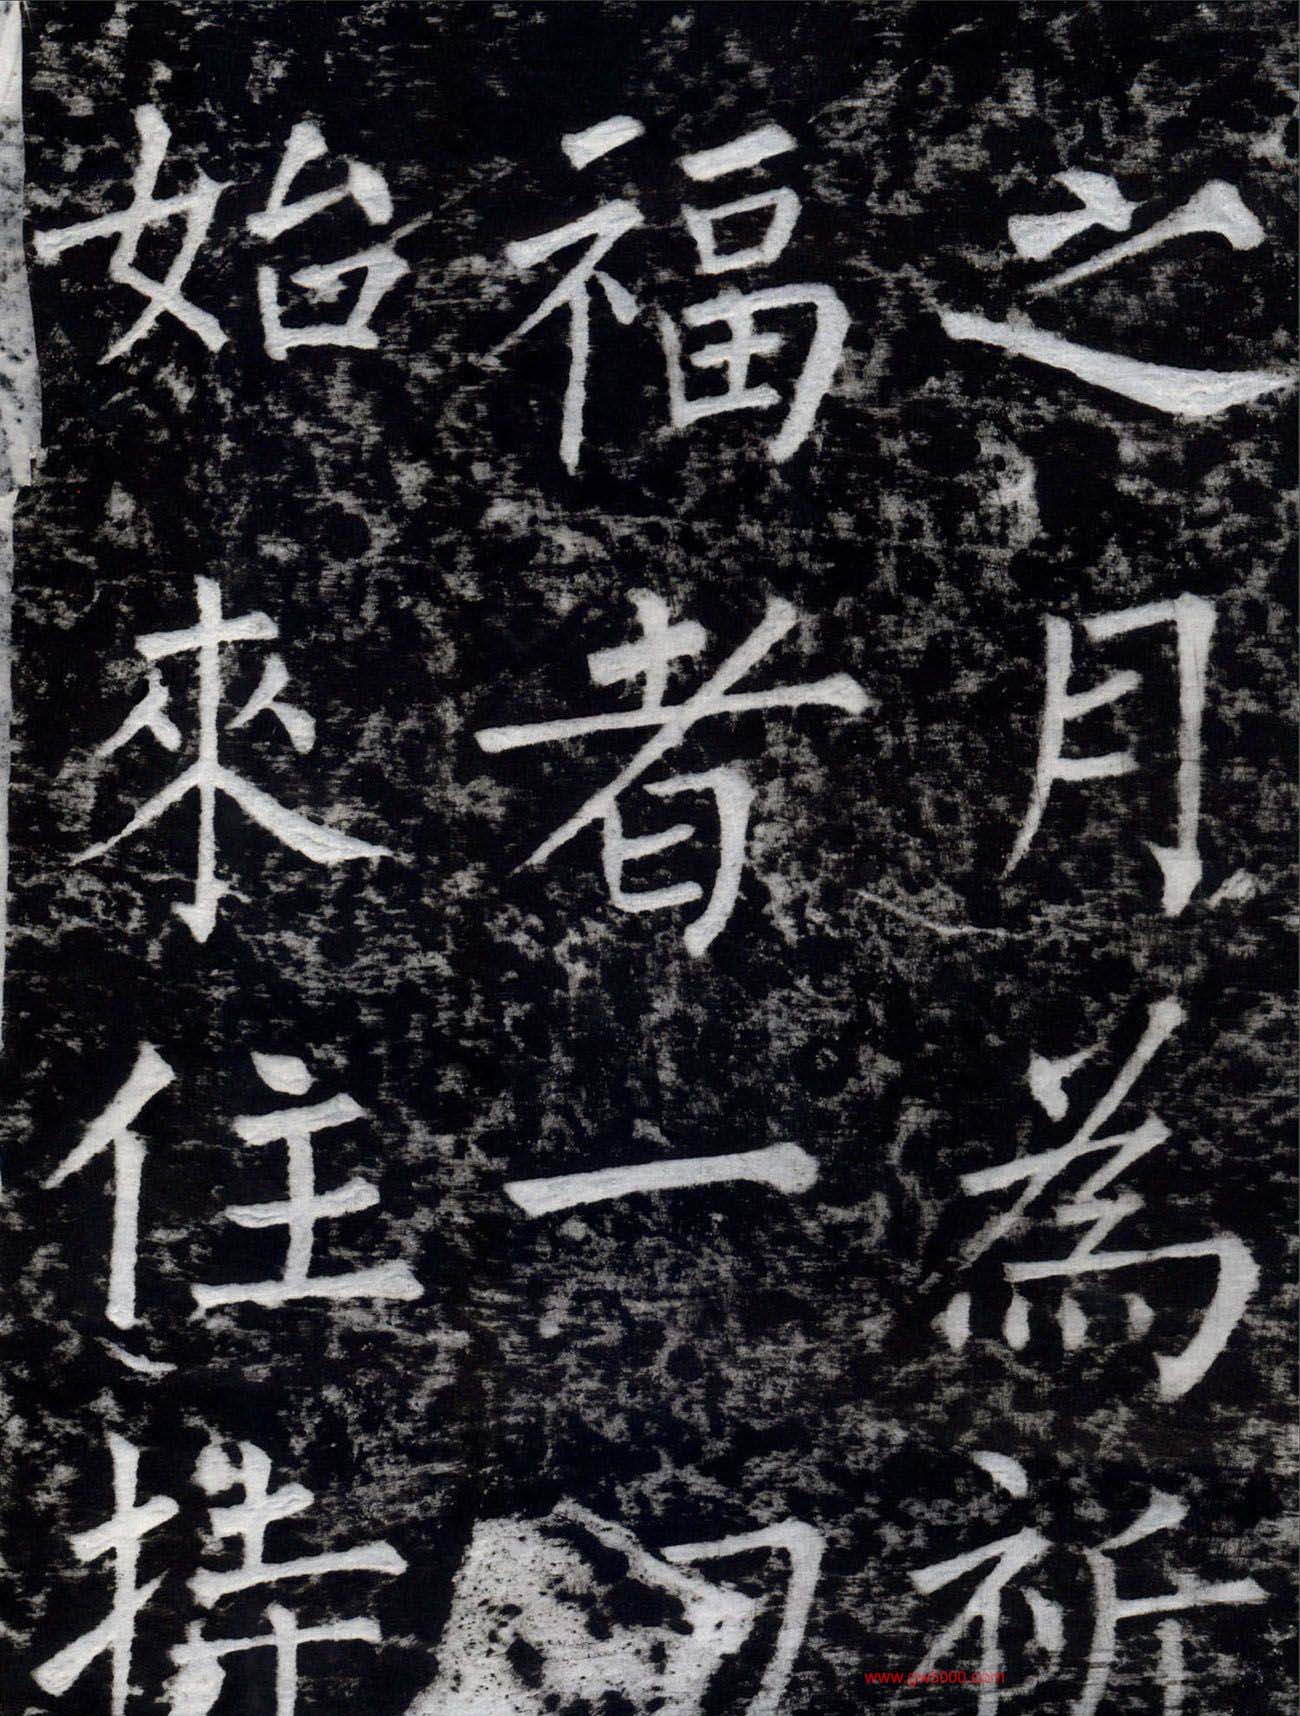 之月為祈
福者一
始來住持
www.gw5000.com